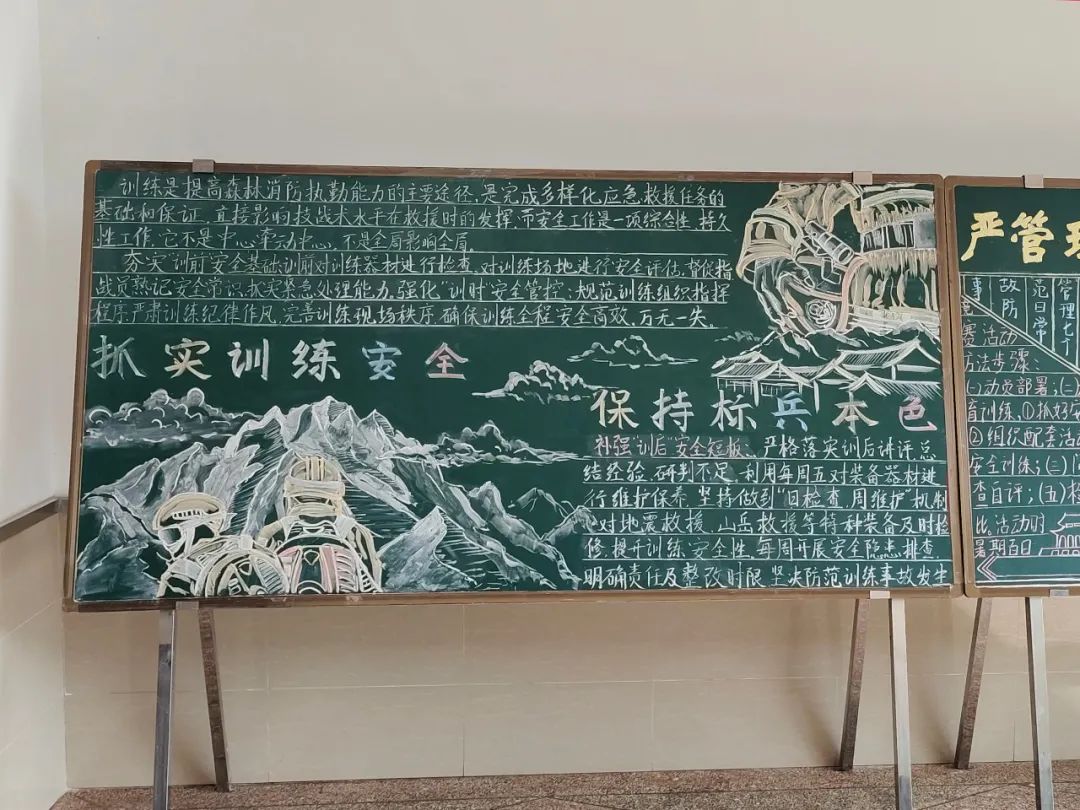 训练是提高森林消防执勤能力的主要途径，是完成多样化应急救援任务的
基础和保证，直接影响技战术水平在救援时的发挥，而安全工作是一项综合性、持久
性工作，它不是中心牵动中心，不是全局影响全局。
夯实"训前"安全基础训前对训练器材进行检查，对训练场地进行安全评估，督促指
战员熟记安全常识，扎实紧急处理能力，强化"训时"安全管控：规范训练组织指挥
程序严肃训练纪律作风，完善训练现场秩序，确保训练全程安全高效，万无一失。
抓实训练安全
保持标兵本色
补强"训后"安全短板，严格落实训后讲评，总
结经验，研判不足，利用每周五对装备器材进
行维护保养，坚持做到"日检查、周维护"机制
对地震救援、山岳救援等特种装备及时检
修，提升训练安全性，每周开展安全隐患排查，
明确责任及整改时限，坚决防范训练事故发生
严管理
事
政
防
范
日
常
管
理
七
个
赛活动
方法步骤：
(一)动员部署；(二)
育训练，①抓好安
②组织配套活
安全训练；(三)
查自评；(五)
比。活动的
暑期百日